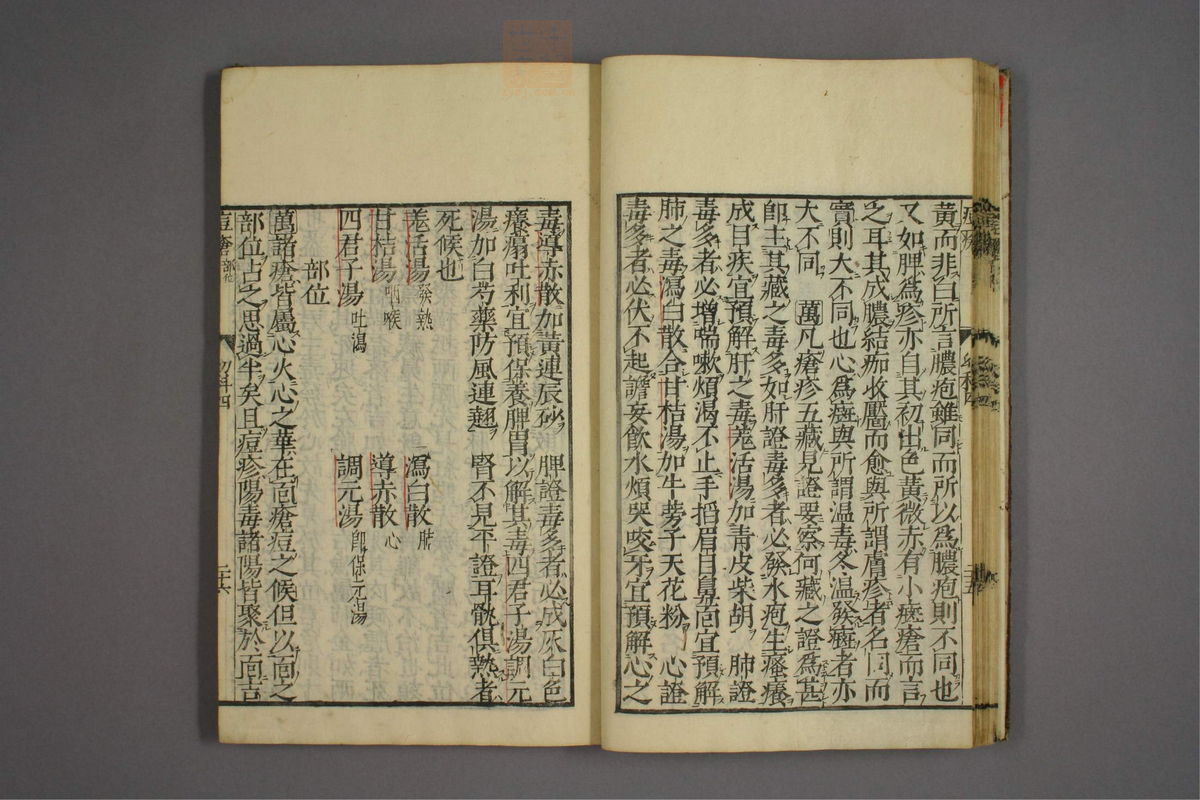 黃而非白所言膿疱雖同而所以爲膿疱則不同也
又如脾爲疹亦自其初出色黃微赤有小斑瘡而言
之耳其成膿結痂收靨而愈與所謂膚疹者名同而
實則大不同也心爲斑與所謂温毒冬温發斑者亦
大不同 萬凡瘡疹五藏見證要察何藏之證爲甚
卽主其藏之毒多如肝證毒多者必發水疱生瘙癢
成目疾宜預解肝之毒羌活湯加靑皮柴胡 肺證
毒多者必增喘嗽煩渴不止手搯眉目鼻面宜預解
肺之毒瀉白散合甘桔湯加牛蒡子天花粉 心證
毒多者必伏不起譫妄飮水煩哭咬牙宜預解心之
毒導赤散加黃連辰砂 脾證毒多者必成灰白色
癢塌吐利宜預保養脾胃以解其毒四君子湯調元
湯加白芍藥防風連翹 腎不見平證耳骫俱熱者
死候也
羌活湯發熱 瀉白散肺
甘桔湯咽喉 導赤散心
四君子湯吐瀉 調元湯卽保元湯
部位
萬諸瘡皆屬心火心之華在面瘡痘之候但以面之
部位占之思過半矣且痘疹陽毒諸陽皆聚於面吉
幼科四
二十六